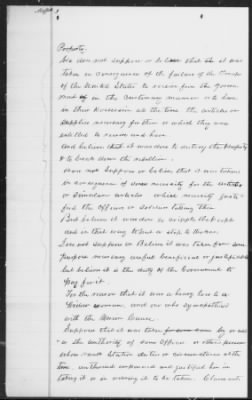 Property.
does not suppose or believe that it was
taken in consequence of the failure of the Troops
of the United States to receive from the Govern
ment in the Customary manner or to have
in their Possession at the time the articles or
supplies necessary for them or which they was
entitled to receive and have
And believe that it was done to destroy the Property
& to break down the rebellion.
does not suppose or believe that it was taken
in consequence of some necessity for the articles
or similar articles which necessity justi-
fied the officers or soldiers taking them
But believe it was done to cripple the
and in that way to but a stop to the war.
Does not suppose or believe it was taken for some
purpose necessary useful beneficial or justifiable
but believe it is the duty of the Government to
Pay for it.
For the reason that it was a heavy loss to a
woman, and one who sympathised
with the Union Cause.
Suppose that it was taken by order
or the authority of some officer or other person
whose Station duties or circumstances at the
time, authorized empowered and justified him in
taking it or in ordering it to be taken. Claimant